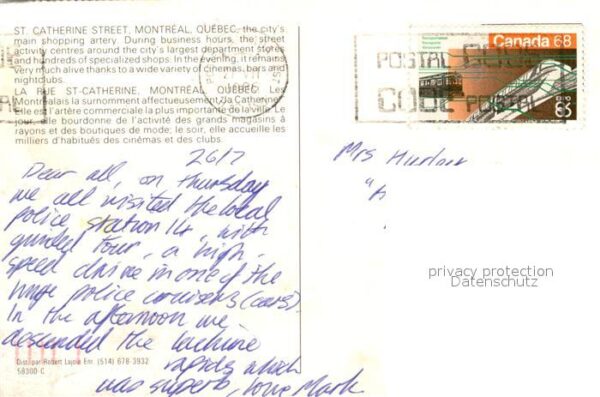 ST. CATHERINE STREET, MONTRÉAL, QUÉBEC, the city's
main shopping artery. During business hours, the street
activity centres around the city's largest department stores
and hundreds of specialized shops. In the evening, it remains
very much alive thanks to a wide variety of cinemas, bars and
nightclubs.
LA RUE ST-CATHERINE, MONTRÉAL, QUÉBEC. Les
Montréalais la surnomment affectueusement "La Catherine".
Elle est l'artère commerciale la plus importante de la ville. Le
jour, elle bourdonne de l'activité des grands magasins à
rayons et des boutiques de mode; le soir, elle accueille les
milliers d'habitués des cinémas et des clubs.
26/7
Dear all, on Thursday
we all visited the local
police station 14, with
guided tour, a high
speed drive in one of the
huge police cruisers (cars).
In the afternoon we
descended the Lachine
rapids which
was superb, love Mark
Dist. par Robert Lajoie Enr. (514) 678-3932
58300 C
Canada 68
POSTAL CODE
CODE POSTAL
Mrs
privacy protection
Datenschutz